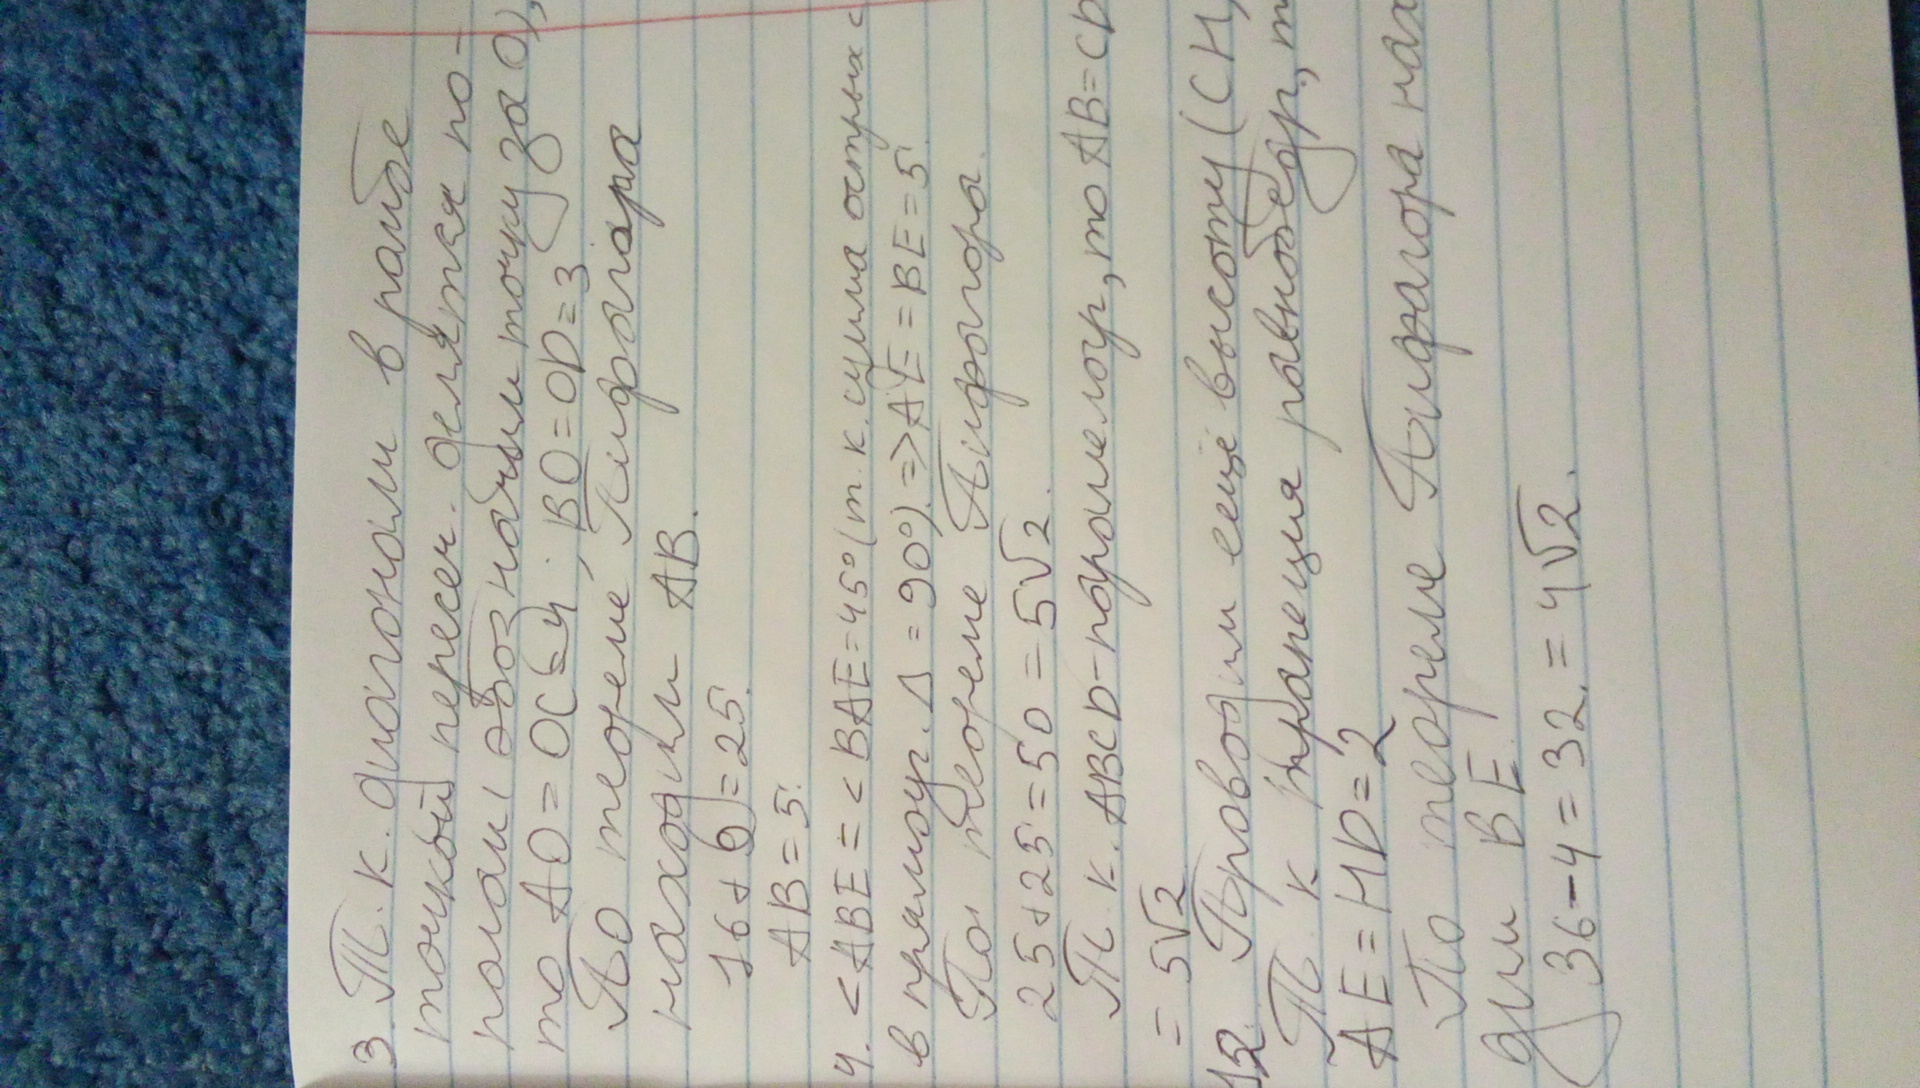 3. Т.к. диагонали в ромбе
точкой пересеч. делятся по-
полам (обозначим точку за О),
то AO = OC = 4; BO = OD = 3
По теореме Пифагора
находим AB.
16 + 9 = 25.
AB = 5.
4. <ABE = <BAE = 45° (т.к. сумма острых
в прямоуг. Δ = 90°). => AE = BE = 5.
По теореме Пифагора.
25 + 25 = 50 = 5√2.
Т.к. ABCD - параллелогр, то AB = CD
= 5√2.
12. Проводим ещё высоту (CH,
Т.к трапеция равнобедр,
AE = HD = 2
По теореме Пифагора
дим BE.
36 - 4 = 32. = 4√2.